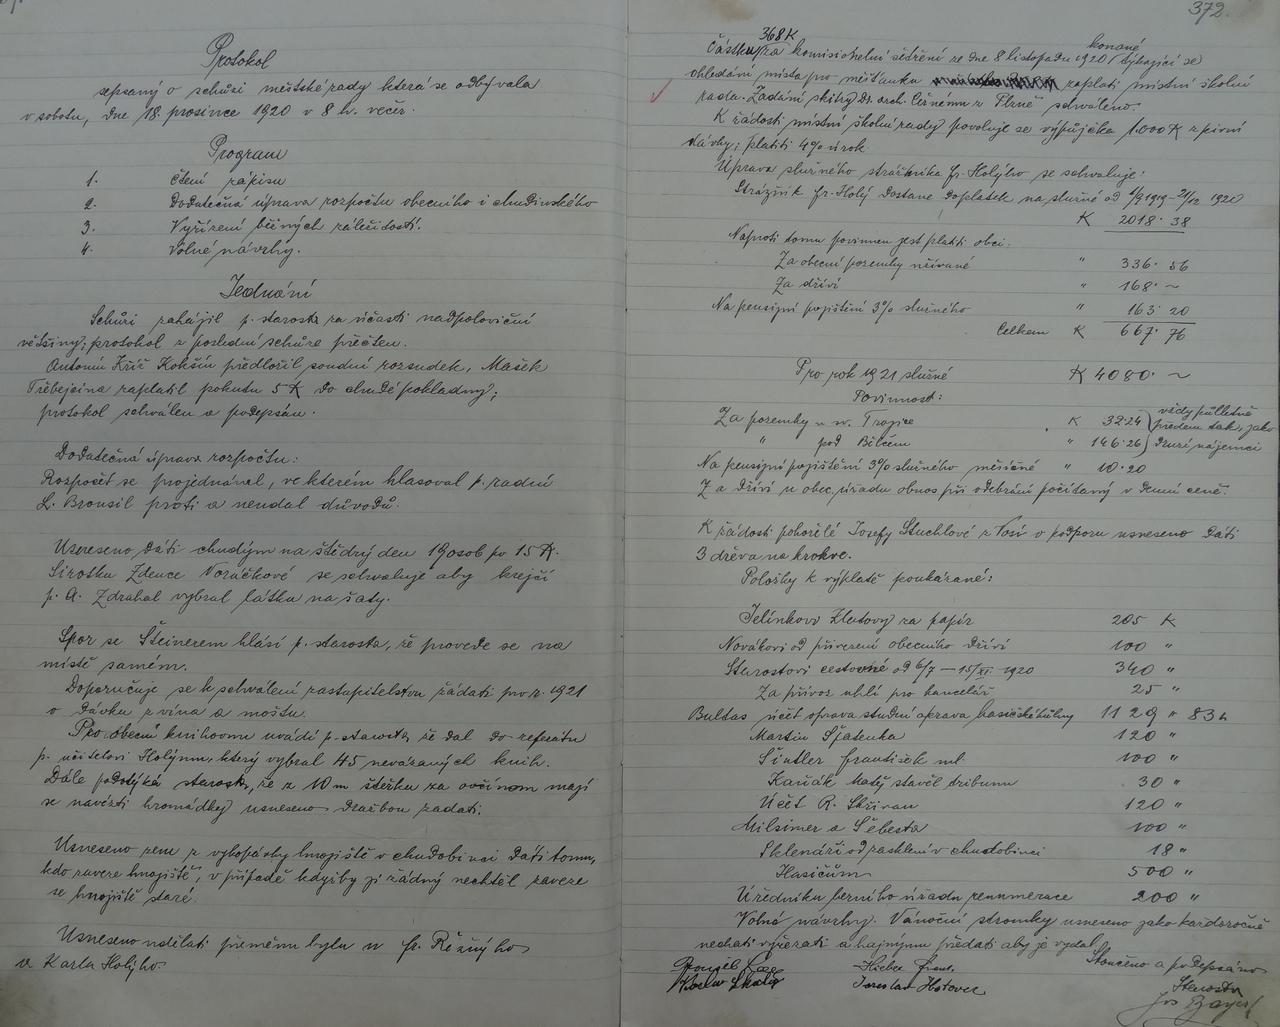 Protokol
sepsaný o schůzi městské rady která se odbývala
v sobotu, dne 18. prosince 1920 v 8 h. večer
Program
1. Čtení zápisu
2. Dodatečná úprava rozpočtu obecního i chudinského
3. Vyřízení běžných záležitostí.
4. Volné návrhy.
Jednání
Schůzi zahájil p. starosta za účasti nadpoloviční
většiny; protokol z poslední schůze přečten.
Antonín Kříž Kokšín předložil soudní rozsudek, Mašek
Třebejčina zaplatil pokutu 5 K do chudé pokladny;
protokol schválen a podepsán.
Dodatečná úprava rozpočtu:
Rozpočet se projednával, ve kterém hlasoval p. radní
L. Brousil proti a neudal důvodů.
Usneseno dáti chudým na štědrý den 19 osob po 15 K.
Sirotku Zdence Voráčkové se schvaluje aby krejčí
p. A. Zdrahal vybral látku na šaty.
Spor se Šteinerem hlásí p. starosta, že provede se na
místě samém.
Doporučuje se k schválení zastupitelstvu žádati pro r. 1921
o dávku z vína a moštu.
Pro obecní knihovnu uvádí p. starosta, že dal do referátu
p. učiteli Holýmu, který vybral 45 nevázaných knih.
Dále podotýká starosta, že z 10 m štěrku za ovčínem mají
se navézti hromádky usneseno dražbou zadati.
Usneseno zem z vykopávky hnojiště v chudobinci dáti tomu,
kdo zaveze hnojiště, v případě kdyby ji žádný nechtěl zaveze
se hnojiště staré.
Usneseno udělati přeměnu bytu u fr. Režného
a Karla Holýho.
372.
368 K konané
Částku za komisionelní šetření ze dne 8 listopadu 1920 týkající se
ohledání místa pro měšťanku zaplatí místní školní
rada. Zadání skitzy Dr. arch. Černému z Plzně schváleno.
K žádosti místní školní rady povoluje se výpůjčka 1.000 K z pivní
dávky; platiti 4% úrok.
Úprava služného strážníka Fr. Holýho se schvaluje:
Strážník Fr. Holý dostane doplatek na služné od 1/9 1919 - 31/12 1920
K 2018.38
Naproti tomu povinnen jest platiti obci:
Za obecní pozemky užívané " 336.56
Za dříví " 168.~
Na pensijní pojištění 3% služného " 163.20
Celkem K 667.76
Pro rok 1921 služné K 4080.~
Povinnost:
Za pozemky u sv. Trojice K 32.24 vždy půlletně
" pod Bílčem " 146.26 předem tak, jako druzí nájemci
Na pensijní pojištění 3% služného měsíčně " 10.20
Za dříví u obec. úřadu obnos při odebrání počítaný v denní ceně.
K žádosti pohořelé Josefy Stuchlové z Vosí o podporu usneseno dáti
3 dřeva na krokve.
Položky k výplatě poukázané:
Jelínkovi Klatovy za papír 205 K
Novákovi od přivezení obecního dříví 100 "
Starostovi cestovné od 6/7 – 15/XI. 1920 340 "
Za přívoz uhlí pro kancelář 25 "
Bultas účet oprava studní oprava hasičské kůlny 1129 " 83 h
Martin Spatenka 120 "
Šintler František ml. 100 "
Kaňák Matěj stavěl tribunu 30 "
Účet R. Skřivan 120 "
Milsimer a Šebesta 100 "
Sklenáři od zasklení v chudobinci 18 "
Hasičům 500 "
Úředníku berního úřadu renumerace 200 "
Volné návrhy. Vánoční stromky usneseno jako každoročně
nechati vyřezati a hajnýmu předati aby je vydal.
Skončeno a podepsáno
Jaroslav Hotovec
Starosta